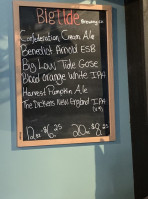 Big Tide
Brewing Co
Confederation Cream Ale
Benedict Arnold ESB
Big Low, Tide Gose
Blood Orange White IPA
Harvest Pumpkin Ale
The Dickens New England IPA
12oz $6.25 20oz $8.25